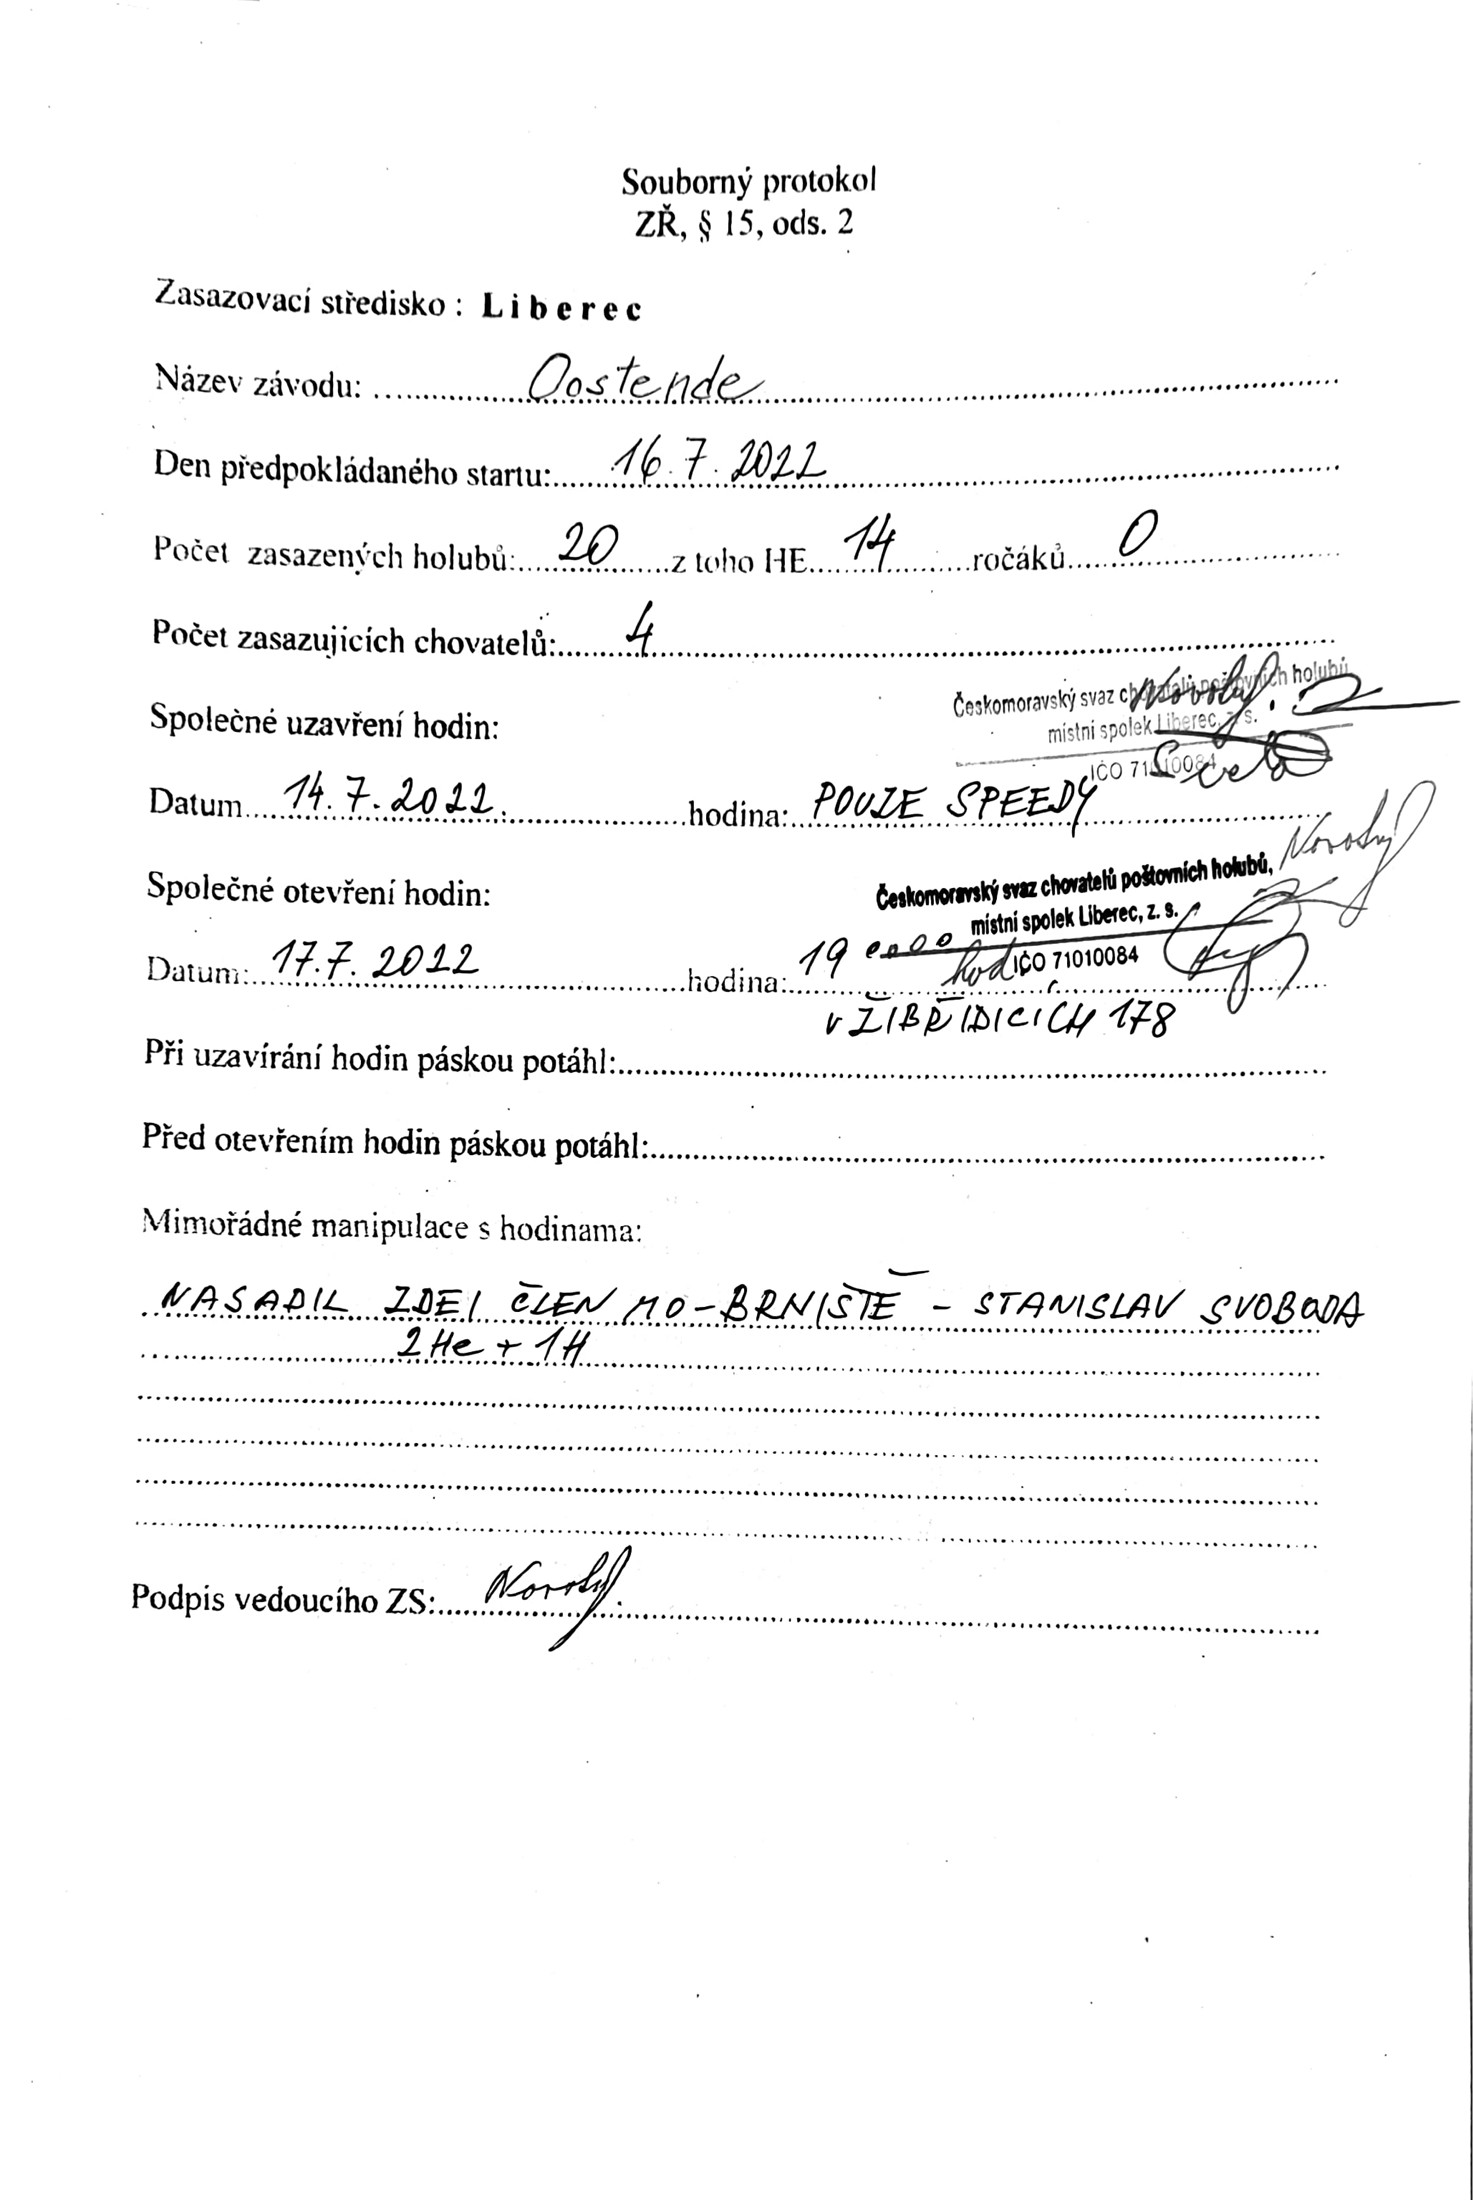 Souborný protokol
ZŘ, § 15, ods. 2
Zasazovací středisko : Liberec
Název závodu: Oostende
Den předpokládaného startu: 16.7.2022
Počet zasazených holubů: 20 z toho HE 14 ročáků 0
Počet zasazujících chovatelů: 4
Českomoravský svaz chovatelů poštovních holubů
místní spolek Liberec, z. s.
IČO 71010084
Společné uzavření hodin:
Datum 14.7.2022. hodina: POUZE SPEEDY
Českomoravský svaz chovatelů poštovních holubů, Novotný
místní spolek Liberec, z. s.
IČO 71010084
Společné otevření hodin:
Datum: 17.7.2022 hodina: 19 0000 hod
v ŽIBŘIDICÍCH 178
Při uzavírání hodin páskou potáhl:
Před otevřením hodin páskou potáhl:
Mimořádné manipulace s hodinama:
NASADIL ZDE I ČLEN MO - BRNIŠTĚ - STANISLAV SVOBODA
2He + 1H
Podpis vedoucího ZS: Novotný